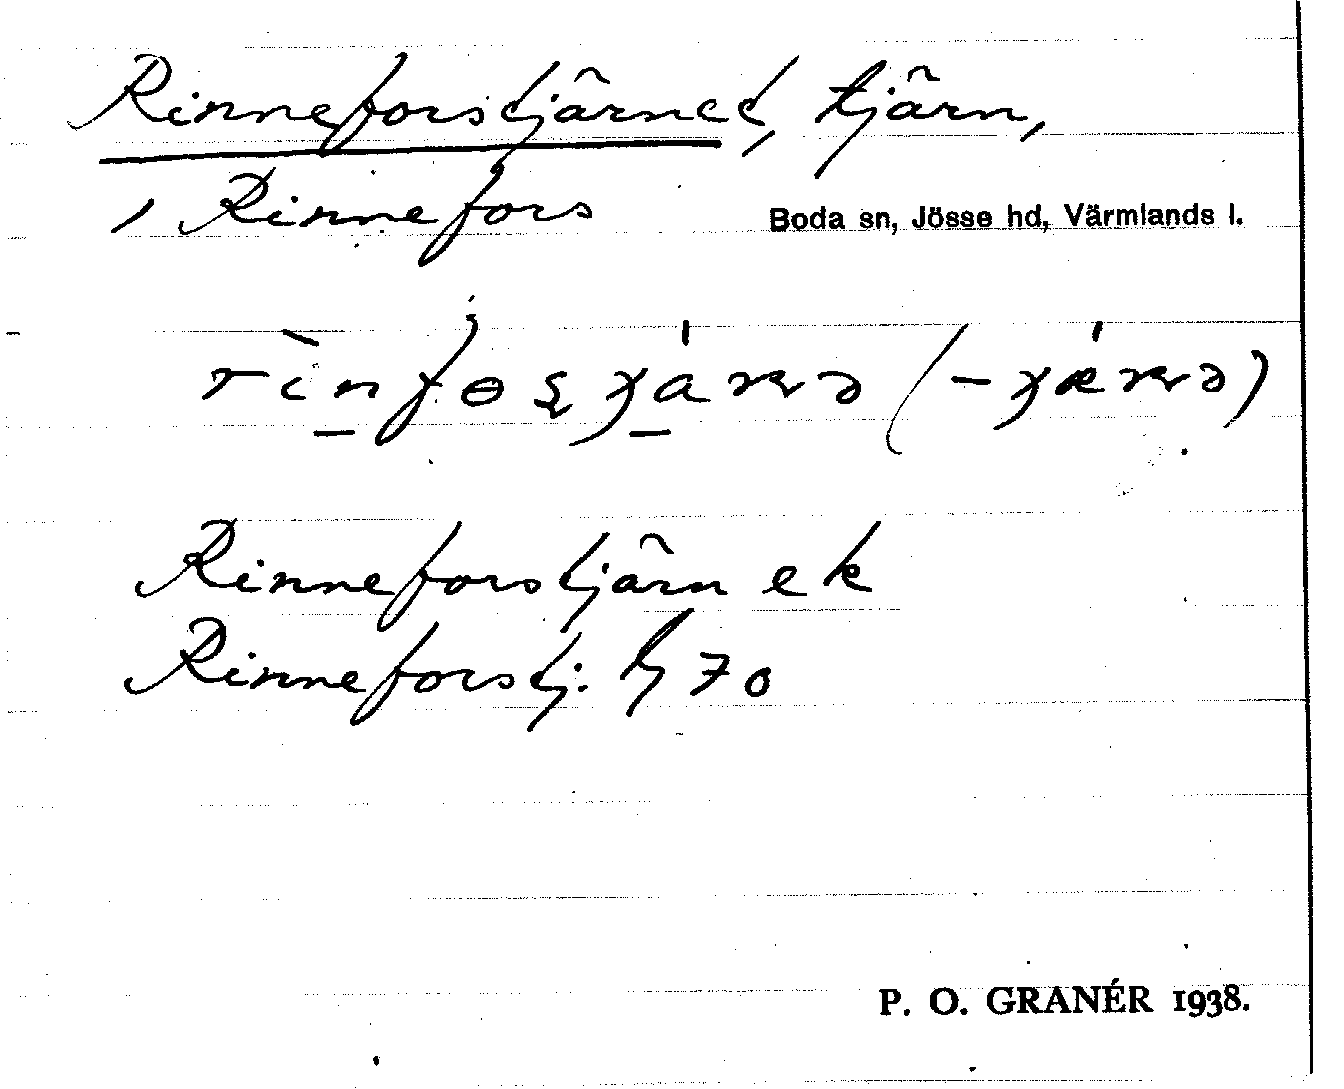 Rinneforstjärnet, tjärn,
, Rinnefors Boda sn, Jösse hd, Värmlands l.
Rinneforstjärn ek
Rinneforstj. h 70
P. O. GRANÉR 1938.